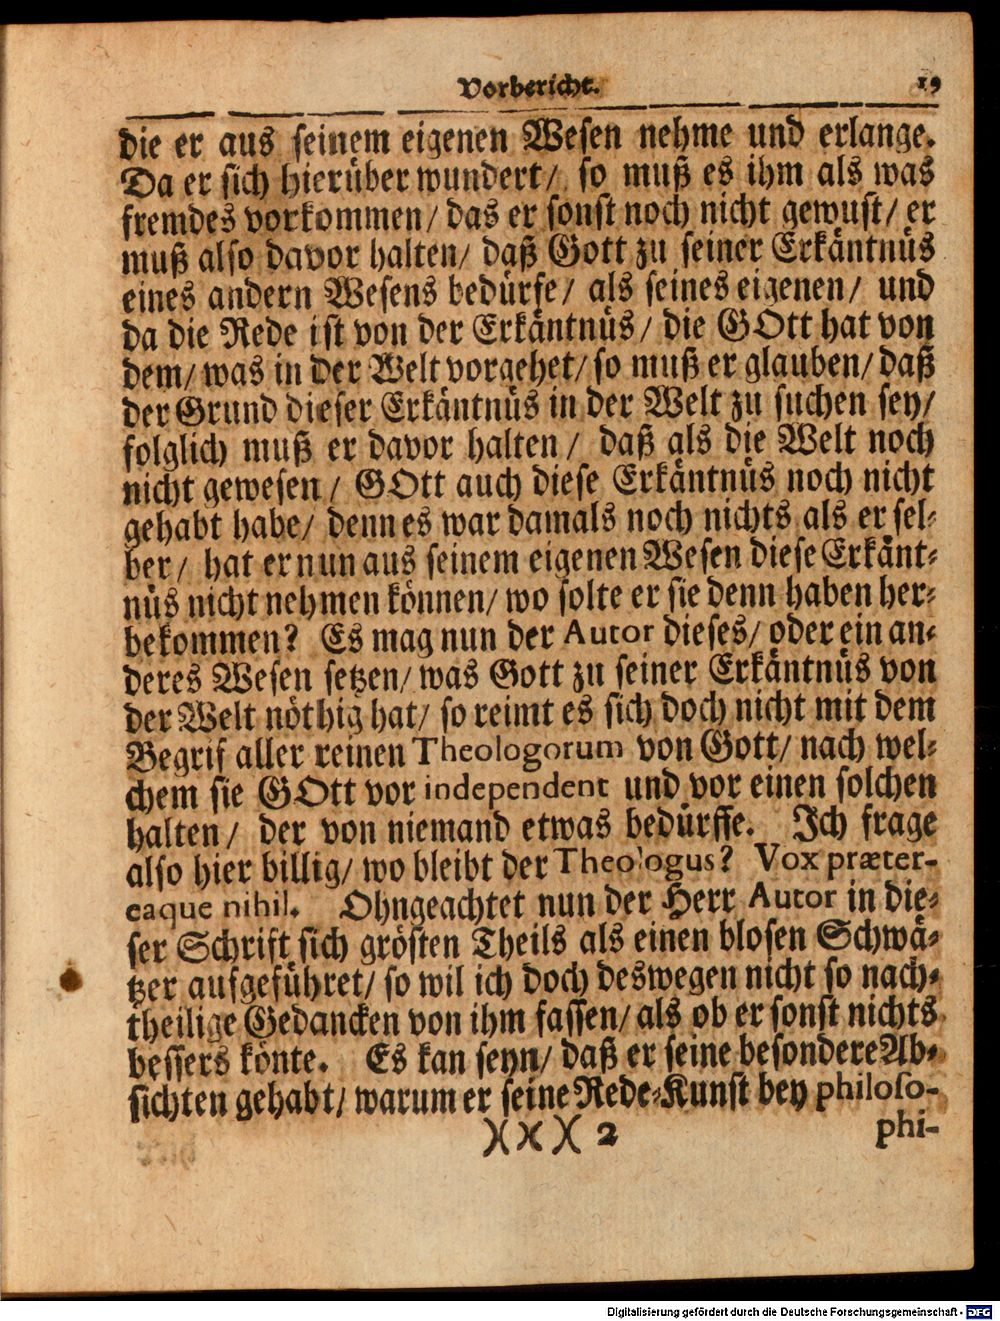 Vorbericht. 19
die er aus seinem eigenen Wesen nehme und erlange.
Da er sich hierüber wundert/ so muß es ihm als was
fremdes vorkommen/ das er sonst noch nicht gewust/ er
muß also davor halten/ daß Gott zu seiner Erkäntnüs
eines andern Wesens bedürfe/ als seines eigenen/ und
da die Rede ist von der Erkäntnüs/ die GOtt hat von
dem/ was in der Welt vorgehet/ so muß er glauben/ daß
der Grund dieser Erkäntnüs in der Welt zu suchen sey/
folglich muß er davor halten/ daß als die Welt noch
nicht gewesen/ GOtt auch diese Erkäntnüs noch nicht
gehabt habe/ denn es war damals noch nichts als er sel-
ber/ hat er nun aus seinem eigenen Wesen diese Erkänt-
nüs nicht nehmen können/ wo solte er sie denn haben her-
bekommen? Es mag nun der Autor dieses/ oder ein an-
deres Wesen setzen/ was Gott zu seiner Erkäntnüs von
der Welt nöthig hat/ so reimt es sich doch nicht mit dem
Begrif aller reinen Theologorum von Gott/ nach wel-
chem sie GOtt vor independent und vor einen solchen
halten/ der von niemand etwas bedürffe. Ich frage
also hier billig/ wo bleibt der Theologus? Vox præter-
eaque nihil. Ohngeachtet nun der Herr Autor in die-
ser Schrift sich grösten Theils als einen blosen Schwä-
tzer aufgeführet/ so wil ich doch deswegen nicht so nach-
theilige Gedancken von ihm fassen/ als ob er sonst nichts
bessers könte. Es kan seyn/ daß er seine besondere Ab-
sichten gehabt/ warum er seine Rede-Kunst bey philoso-
)( x )( 2 phi-
Digitalisierung gefördert durch die Deutsche Forschungsgemeinschaft - DFG